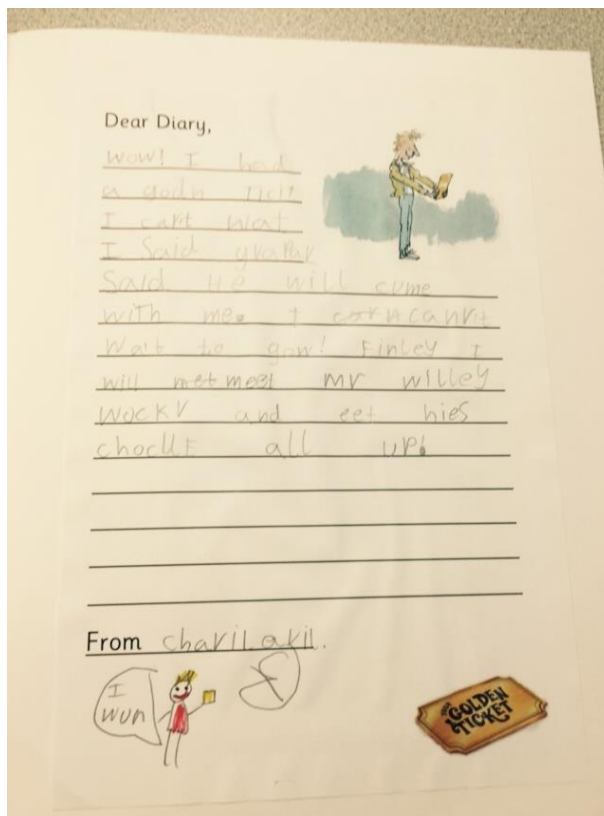 Dear Diary,
wow! I had
a godn ticit
I cart wat
I Said grapar
Said He will cume
with me. I canrt
Wait to gow! Finley I
will met meet mr willey
wocky and eet hies
choclle all up!
From charil
I
wun
THE
GOLDEN
TICKET